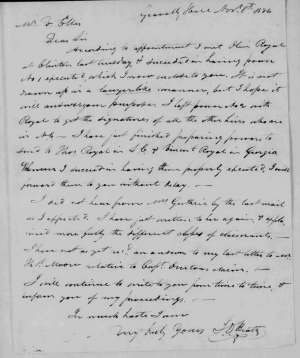 Gravelly Hill Nov. 8th 1834
Mr. V. Ellis
Dear Sir
According to appointment I met Olin Royal
at Clinton last Tuesday & succeeded in having power
No 1, executed, which I now enclose to you. It is not
drawn up in a lawyerlike manner, but I hope it
will answer your purpose. I left power No 2 with
Royal to get the signatures of all the other heirs who are
in N.C. — I have just finished preparing powers to
send to Thos Royal in S.C. & Royal in Georgia
Whenever I succeed in having them properly executed, I will
forward them to you without delay. —
I did not hear from Mrs Guthrie by the last mail
as I expected. I have just written to her again, &
more fully the different of claimants. —
I have not as yet rec'd an answer to my last letter to Mr
Moore relative to Capt. heirs. —
I will continue to write to you from time to time, &
inform you of my proceedings. —
In much haste I am
very truly yours